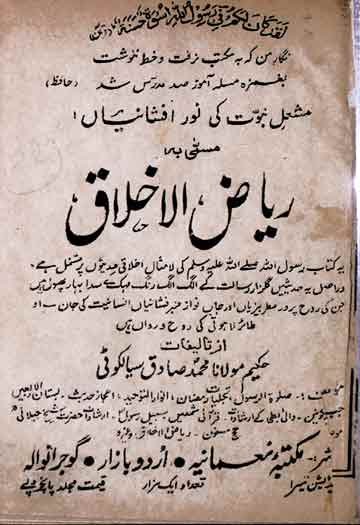 لقد كان لكم في رسول الله اسوة حسنة
نگار من کہ بہ مکتب نرفت و خط ننوشت
بغمزہ مسئلہ آموز صد مدرس شد (حافظ)
مشعل نبوت کی نور افشانیاں
مسمّٰی بہ
ریاض الاخلاق
یہ کتاب رسول اللہ صلے اللہ علیہ وسلم کی لامثال اخلاقی حدیثوں پر مشتمل ہے۔
دراصل یہ حدیثیں گلزار رسالت کے الگ الگ رنگ مہک کے سدا بہار پھول ہیں
جن کی روح پرور عطر بیزیاں اور جاں نواز عنبر فشانیاں انسانیت کی جان۔ او
طائر لاہوتی کی روح و رواں ہیں
از تالیفات
حکیم مولانا محمد صادق سیالکوٹی
صلوٰۃ الرسول۔ تجلیات رمضان۔ انوار التوحید۔ اعجاز حدیث۔ بستان الاربعین
قرآنی شمعیں۔ سبیل رسول۔ ارشادات حضرت شیخ جیلانی
حج مسنون۔ ریاض الاخلاق وغیرہ
مکتبہ نعمانیہ۔ اردو بازار۔ گوجرانوالہ
تعداد ایک ہزار قیمت مجلد پانچ روپے